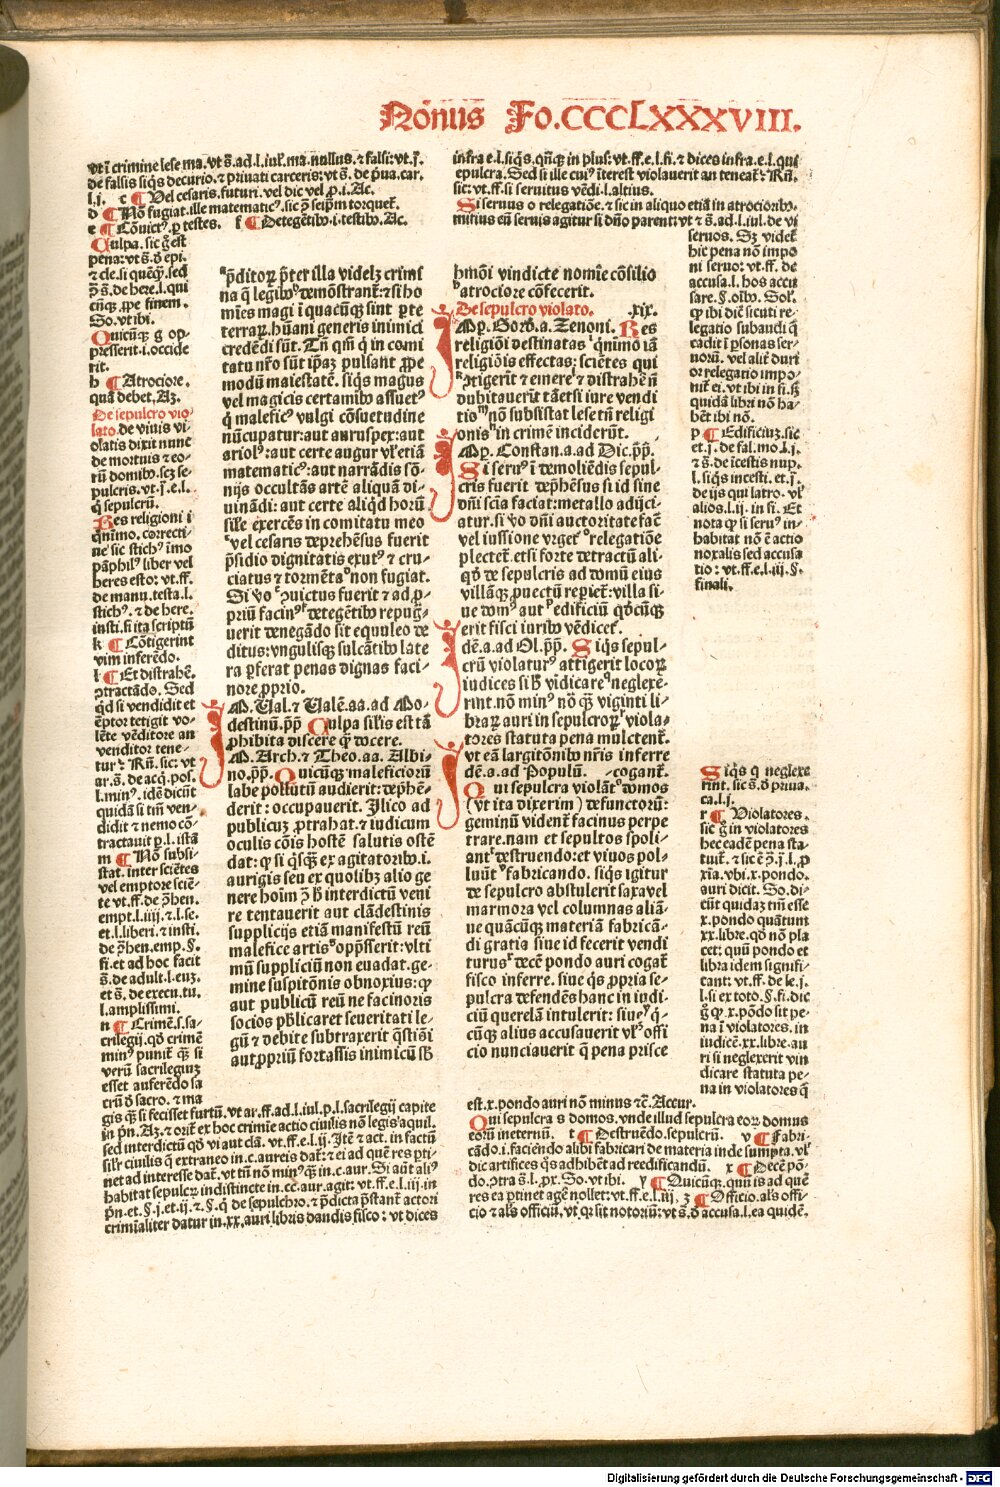 Nonus Fo.CCCLXXXVIII.
vt ī crimine lese ma. vt s̄. ad. l. iul. ma. nullus. ⁊ falsi: vt. j̄.
de falsis siq̄s decurio. ⁊ priuati carceris: vt s̄. de p̄ua. car.
l. j. c ¶ Vel cesaris. futuri. vel dic vel ꝓ. i. Ac.
d ¶ Nō fugiat. ille matematic⁹. sic ꝓ seip̄m torquet̄.
e ¶ Cōuict⁹. ꝑ testes. f ¶ Detegētibꝰ. i. testibꝰ. Ac.
Culpa. sic ḡ est
pena: vt s̄. d̄ epi.
⁊ cle. si quēq̄ꝫ. sed
ꝓ s̄. de here. l. qui
cūq̄ꝫ. ꝓpe finem.
So. vt ibi.
Quicūq̄ꝫ g op-
presserit. i. occide
rit.
h ¶ Atrociore.
quā debet. Aꝫ.
De sepulcro vio-
lato. de viuis vi-
olatis dixit nunc
de mortuis ⁊ eo-
rū domibꝰ. scꝫ se-
pulcris. vt. j̄. e. l.
q̄ sepulcrū.
Res religioni i
q̄nimo. correcti-
ue sic stich⁹ imo
pāphil⁹ liber vel
heres esto: vt. ff.
de manu. testa. l.
stich⁹. ⁊ de here.
insti. si ita scriptū
k ¶ Cōtigerint
vim inferēdo.
l ¶ Et distrahē.
ꝯtractādo. Sed
qd̄ si vendidit et
ēptor tetigit vo-
lēte vēditore an
venditor tene-
tur? Rn̄. sic: vt
ar. s̄. de acq̄. pos.
l. min⁹. idē dicūt
quidā si tm̄ ven-
didit ⁊ nemo cō-
tractauit ꝑ. l. istā
m ¶ Nō subsi-
stat. inter sciētes
vel emptore sciē-
te vt. ff. de ꝯhen.
empt. l. iiij. ⁊ l. se.
et. l. liberi. ⁊ insti.
de ꝯhen. emp. §.
fi. et ad hoc facit
s̄. de adult. l. euꝫ.
et s̄. de execu. tu.
l. amplissimi.
n ¶ Crimē. s. sa-
crilegij. qd̄ crimē
min⁹ punit̄ q̄ꝫ si
verū sacrilegiuꝫ
esset auferēdo sa
crū d̄ sacro. ⁊ ma
gis q̄ꝫ si fecisset furtū. vt ar. ff. ad. l. iul. p. l. sacrilegij capite
in p̄n. Aꝫ. ⁊ orit̄ ex hoc crimīe actio ciuilis nō legis aquil.
sed interdictū qd̄ vi aut clā. vt. ff. e. l. ij. Itē ⁊ act. in factū
sil'r ciuilis q̄ extraneo in. c. aureis dat̄: ⁊ ei ad quē res ꝑti-
net ad interesse dat̄. vt tū nō min⁹ q̄ꝫ in. c. aur. Si aūt ali⁹
habitat sepulcꝝ indistincte in. cc. aur. agit: vt. ff. e. l. iij. in
p̄n. et. §. j. et. ij. ⁊. §. q̄ de sepulchro. ⁊ p̄dicta p̄stant̄ actori
crimīaliter datur in. xx. auri libris dandis fisco: vt dices
p̄ditoꝝ p̄ter illa videlꝫ crimī
na q̄ legibꝰ demōstrant̄: ⁊ si ho
mīes magi ī quacūq̄ꝫ sint ꝑte
terraꝝ. hūani generis inimici
credēdi sūt. Tn̄ qm̄ q̄ in comi
tatu nr̄o sūt ip̄aꝫ pulsant ꝓpe
modū maiestatē. siq̄s magus
vel magicis certamībꝰ assuet⁹
q̄ malefic⁹ vulgi cōsuetudine
nūcupatur: aut aruspex: aut
ariol⁹: aut certe augur vl' etiā
mathematic⁹: aut narrādis sō-
nijs occultās artē aliquā di-
uinādi: aut certe aliqd̄ horū
sil'e exercēs in comitatu meo
vel cesaris deprehēsus fuerit
p̄sidio dignitatis exut⁹ ⁊ cru-
ciatus ⁊ tormēta non fugiat.
Si vo ꝯuictus fuerit ⁊ ad ꝓ-
priū facin⁹ detegētibꝰ repug-
uerit denegādo sit equuleo de
ditus: vngulisq̄ꝫ sulcātibꝰ late
ra ꝑferat penas dignas faci-
nore ꝓprio.
M. Val. ⁊ Valē. aa. ad Mo-
destinū. p̄p̄ Culpa sil'is est tā
ꝓhibita discere q̄ꝫ docere.
M. Arch. ⁊ Theo. aa. Albi-
no. p̄p̄. Quicūq̄ꝫ maleficiorū
labe pollutū audierit: deꝓhē-
derit: occupauerit. Ilico ad
publicuꝫ ꝓtrahat. ⁊ iudicum
oculis cōis hostē salutis ostē
dat: ꝙ si q̄sq̄ꝫ ex agitatoribꝰ. i.
aurigis seu ex quolibꝫ alio ge
nere hoīm ꝯ h̄ interdictū veni
re tentauerit aut clādestinis
supplicijs etiā manifestū reū
malefice artis opp̄sserit: vlti
mū suppliciū non euadat. ge-
mine suspitōnis obnoxius: ꝙ
aut publicū reū ne facinoris
socios pb̄licaret seueritati le-
gū ⁊ debite subtraxerit q̄stiōi
aut ꝓpriū fortassis inimicū sb̄
infra e. l. siq̄s. qn̄cq̄ꝫ in plus: vt. ff. e. l. fi. ⁊ dices infra. e. l. qui
epulcra. Sed si ille cui⁹ īterest violauerit an teneat̄? Rn̄.
sic: vt. ff. si seruitus vēdi. l. altius.
Si seruus o relegatiōe. ⁊ sic in aliquo etiā in atrocioribꝰ.
mitius em̄ seruis agitur si dn̄o parent: vt ⁊ s̄. ad. l. iul. de vi
seruos. Sꝫ videt̄
hic pena nō impo
ni seruo: vt. ff. de
accusa. l. hos accu
sare. §. oībꝰ. Sol'.
ꝙ ibi dic̄ sicuti re-
legatio subaudi q̄
cadit ī ꝑsonas ser-
uorū. vel alit̄ duri
or relegatio impo-
nit̄ ei. vt ibi in fi. sꝫ
quidā libri nō ha-
bēt ibi nō.
p ¶ Edificiuꝫ. sic
et. j̄. de fal. mo. l. j.
⁊ s̄. de īcestis nup.
l. siq̄s incesti. et. j̄.
de ijs qui latro. vl'
alios. l. ij. in fi. Et
nota ꝙ si seru⁹ in-
habitat nō ē actio
noxalis sed accusa
tio: vt. ff. e. l. iij. §.
finali.
hmōi vindicte nomīe cōsilio
atrociore cōfecerit.
De sepulcro violato. .xix.
Mp. Gord. a. Zenoni. Res
religiōi destinatas q̄nimo iā
religiōis effectas: sciētes qui
ꝯtigerīt ⁊ emere ⁊ distrahe n̄
dubitauerūt tāetsi iure vendi
tio nō subsistat lese tn̄ religi
onis in crimē inciderūt.
Mp. Constan. a. ad Dic. p̄p̄.
Si seru⁹ ī demoliēdis sepul-
cris fuerit deꝓhēsus si id sine
dn̄i sciā faciat: metallo adijci
atur. si vo dn̄i auctoritate faĉ
vel iussione vrget̄ relegatiōe
plectet̄. et si forte detractū ali-
qd̄ de sepulcris ad domū eius
villāq̄ꝫ ꝓuectū reꝑiet̄: villa si-
ue dom⁹ aut edificiū qd̄cūq̄ꝫ
erit fisci iuribꝰ vēdicet̄.
dē. a. ad Ol. p̄p̄. Siq̄s sepul-
crū violatur⁹ attigerit locoꝝ
iudices si h̄ vīdicare neglexe-
rint. nō min⁹ nō q̄ꝫ viginti li-
braꝝ auri in sepulcroꝝ viola-
tores statuta pena mulctent̄.
vt eā largitōnibꝰ nr̄is inferre
dē. a. ad Populū. cogant̄.
Qui sepulcra violāt domos
(vt ita dixerim) defunctorū:
geminū vident̄ facinus perpe
trare. nam et sepultos spoli-
ant destruendo: et viuos pol-
luūt fabricando. siq̄s igitur
de sepulcro abstulerit saxa vel
marmora vel columnas aliā-
ue quācūq̄ꝫ materiā fabricā-
di gratia siue id fecerit vendi
turus decē pondo auri cogat̄
fisco inferre. siue q̄s ꝓpria se-
pulcra defendēs hanc in iudi-
ciū querelā intulerit: siue q̄-
cūq̄ꝫ alius accusauerit vl' offi
cio nunciauerit q̄ pena prisce
Siq̄s q̄ neglexe
rint. sic s̄. d̄ priua.
ca. l. j.
r ¶ Violatores.
sic ḡ in violatores
hec eadē pena sta-
tuit̄. ⁊ sic ē ꝯ. j̄. l. ꝓ
xīa. vbi. x. pondo.
auri dicit. So. di-
cūt quidaꝫ tm̄ esse
x. pondo quātum
xx. libre. qd̄ nō pla
cet: quū pondo et
libra idem signifi-
cant: vt. ff. de le. j.
l. si ex toto. §. fi. dic
ḡ ꝙ. x. pōdo sit pe-
na ī violatores. in
iudicē. xx. libre. au
ri si neglexerit vin
dicare statuta pe-
na in violatores q̄
est. x. pondo auri nō minus ⁊c̄. Accur.
Qui sepulcra s domos. vnde illud sepulcra eoꝝ domus
eorū ineternū. t ¶ Destruēdo. sepulcrū. v ¶ Fabri-
cādo. i. faciendo alibi fabricari de materia inde sumpta. vl'
dic artifices q̄s adhibēt ad reedificandū. x ¶ Decē pō-
do. ꝯtra s̄. l. ꝓx. So. vt ibi. y ¶ Quicūq̄ꝫ. quū is ad quē
res ea ꝑtinet agē nollet: vt. ff. e. l. iij. z ¶ Officio. al's offi-
cio ⁊ al's officiū. vt qr̄ sit notoriū: vt s̄. d̄ accusa. l. ea quidē.
Digitalisierung gefördert durch die Deutsche Forschungsgemeinschaft - DFG